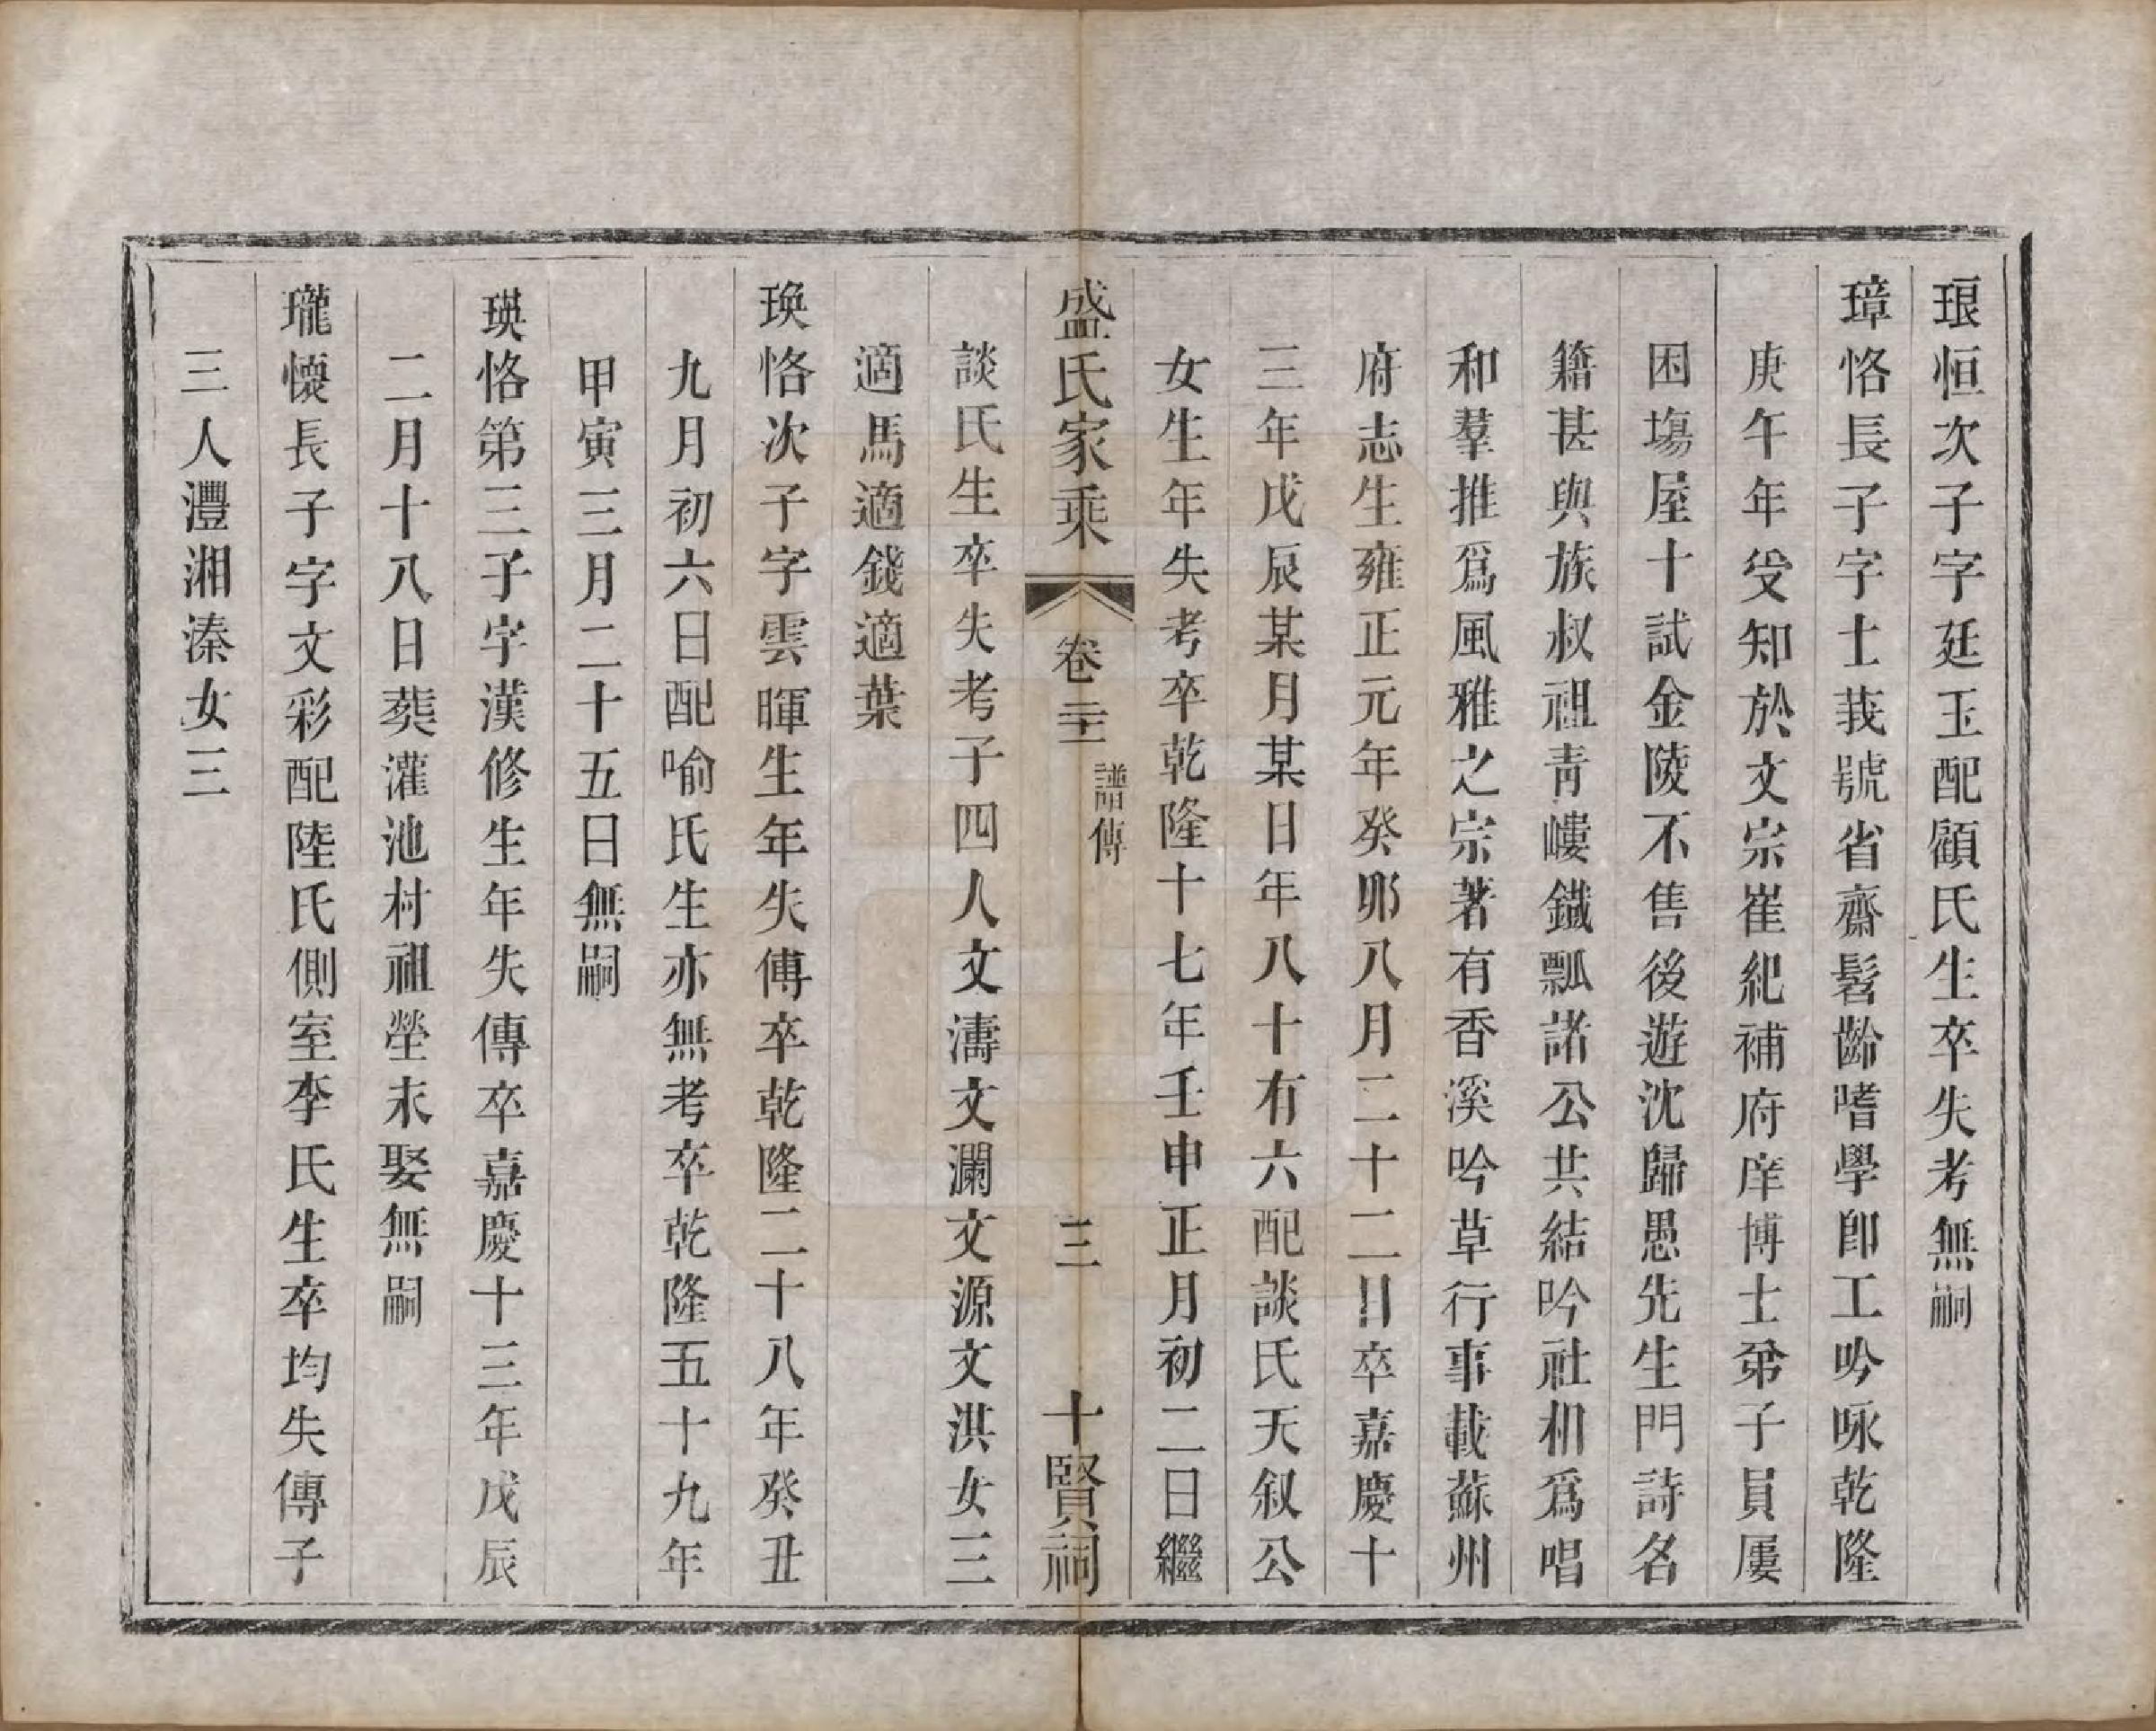 琅恒次子字廷玉配顧氏生卒失考無嗣
璋恪長子字士莪號省齋髫齡嗜學卽工吟咏乾隆
庚午年受知於文宗崔紀補府庠博士弟子員屢
困塲屋十試金陵不售後遊沈歸愚先生門詩名
籍甚與族叔祖青嶁鐵瓢諸公共結吟社相爲唱
和羣推爲風雅之宗著有香溪吟草行事載蘇州
府志生雍正元年癸卯八月二十二日卒嘉慶十
三年戊辰某月某日年八十有六配談氏天叙公
女生年失考卒乾隆十七年壬申正月初二日繼
盛氏家乘 卷二十二 譜傳 三 十賢祠
談氏生卒失考子四人文濤文瀾文源文淇女三
適馬適錢適葉
瑍恪次子字雲暉生年失傳卒乾隆二十八年癸丑
九月初六日配喻氏生亦無考卒乾隆五十九年
甲寅三月二十五日無嗣
瑛恪第三子字漢修生年失傳卒嘉慶十三年戊辰
二月十八日葬灌池村祖塋未娶無嗣
瓏懷長子字文彩配陸氏側室李氏生卒均失傳子
三人灃湘溱女三